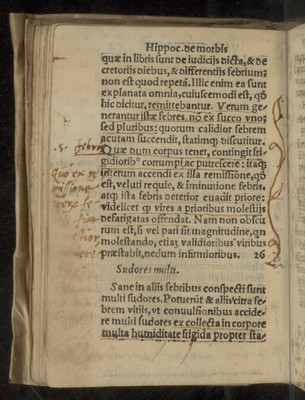 Hippoc. de morbis
quæ in libris sunt de iudicijs dicta, & de
cretoriis diebus, & differentijs febrium,
non est quod repetã. Illic enim ea sunt
explanata omnia, cuiuscemodi est, qd
hic dicitur, remittebantur. Verum ge-
nerantur istæ febres, nõ ex succo vno,
sed pluribus: quorum calidior febrem
acutam succendit, statimq; discutitur.
Quæ dum corpus tenet, contingit fri-
gidiorib⁹ corrumpi, ac putrescere: itaq;
interum accendi ex illa remissione, qd
est, veluti requie, & iminutione febris,
atq; ista febris deterior euadit priore:
videlicet qp vires a prioribus molestijs
defatigatas offendat. Nam non obscu
rum est, si vel pari sit magnitudine, qn
molestando, etiaq; validioribus viribus
præstabit, nedum infirmioribus. 26
Sudores multi.
Sane in aliis febribus conspecti sunt
multi sudores. Potuerũt & alii vltra fe-
brem vitiis, vt conuulsionibus accide-
re multi sudores ex collecta in corpore
multa humiditate frigida propter sta-
.5. febris
quo ex re
missione